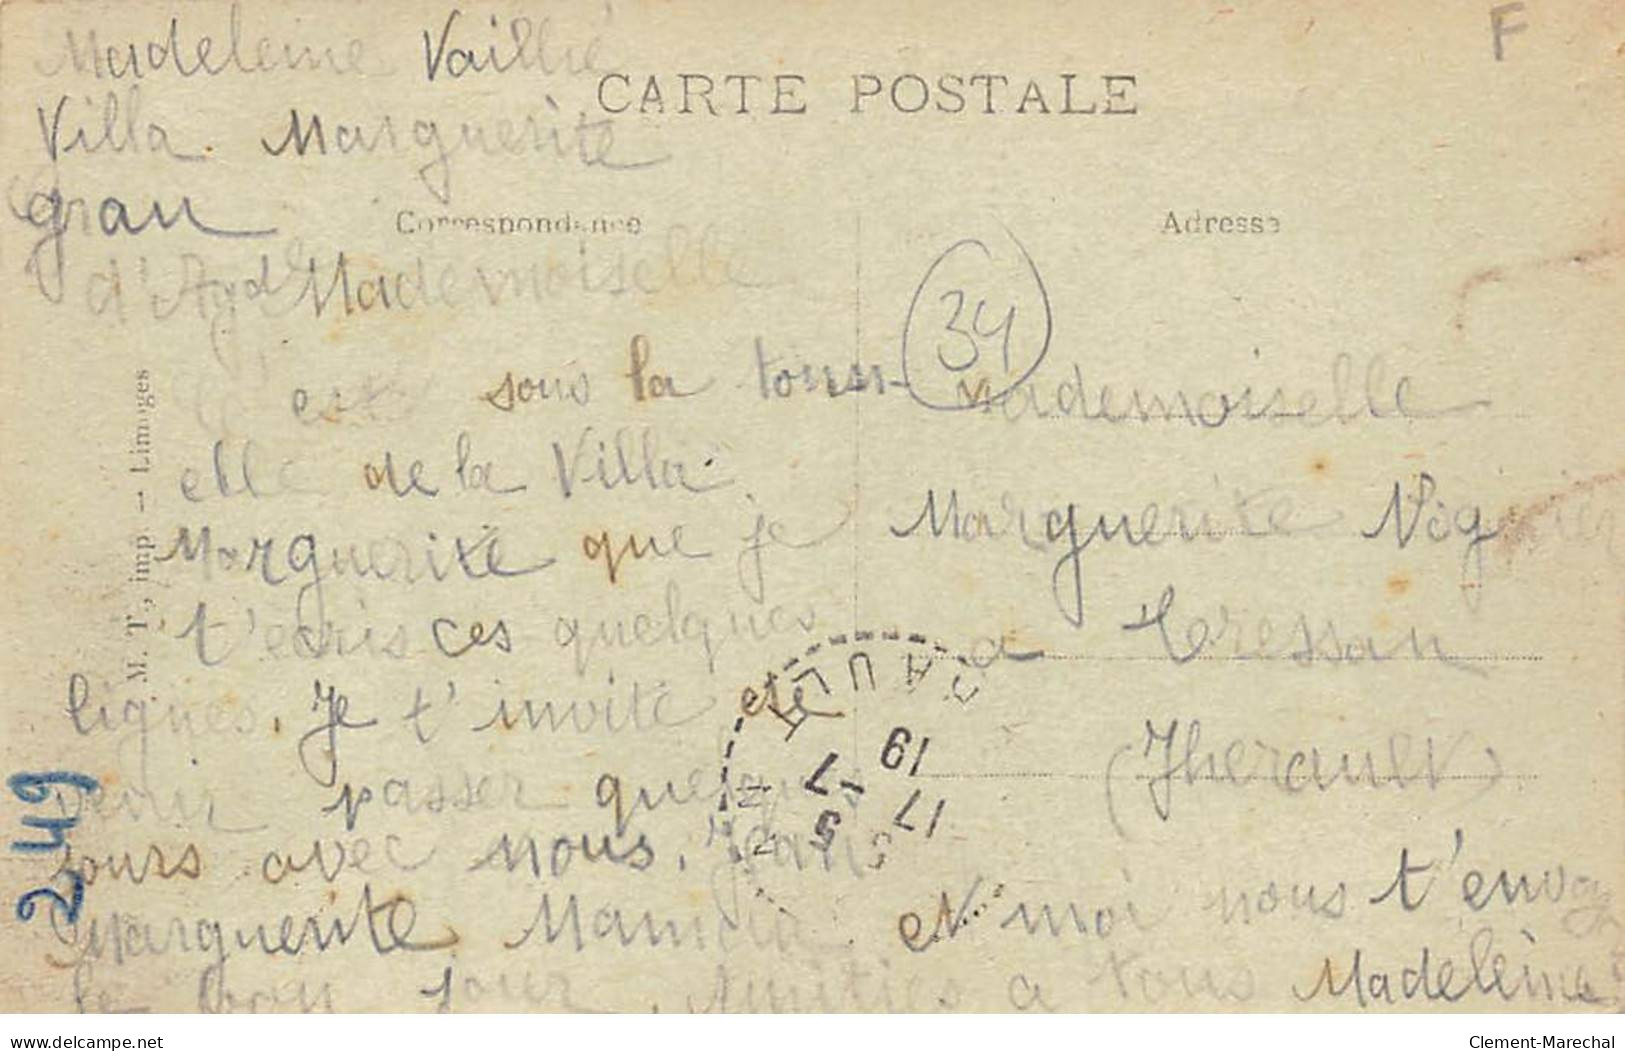 Madeleine Vaillé
Villa Marguerite
grau
d'Agde
F
CARTE POSTALE
Correspondance
Adresse
M. T., imp. - Limoges
Mademoiselle
C'est sous la tonn-
elle de la Villa
Marguerite que je
t'ecris ces quelques
lignes. Je t'invite
venir passer quelques
jours avec nous. Jean
Marguerite Maman et moi nous t'envoy
le bon jour. Amities a tous Madeleine
34
Mademoiselle
Marguerite Vignier
a Tressan
(Jherault)
HERAULT
17
5 -7
19
249
www.delcampe.net
Clement-Marechal